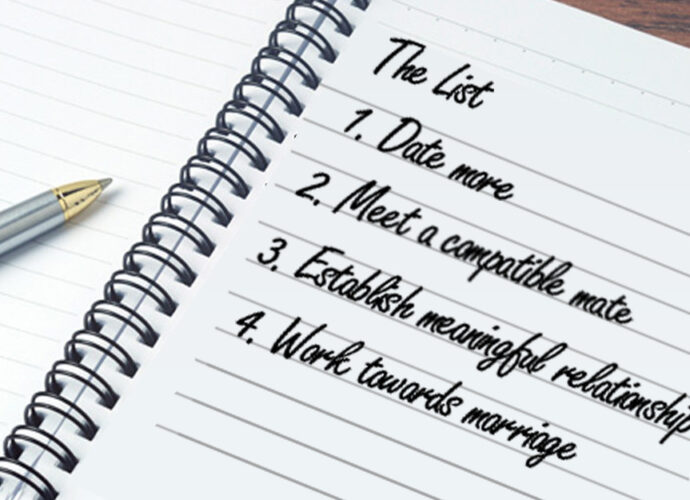 The List
1. Date more
2. Meet a compatible mate
3. Establish meaningful relationship
4. Work towards marriage